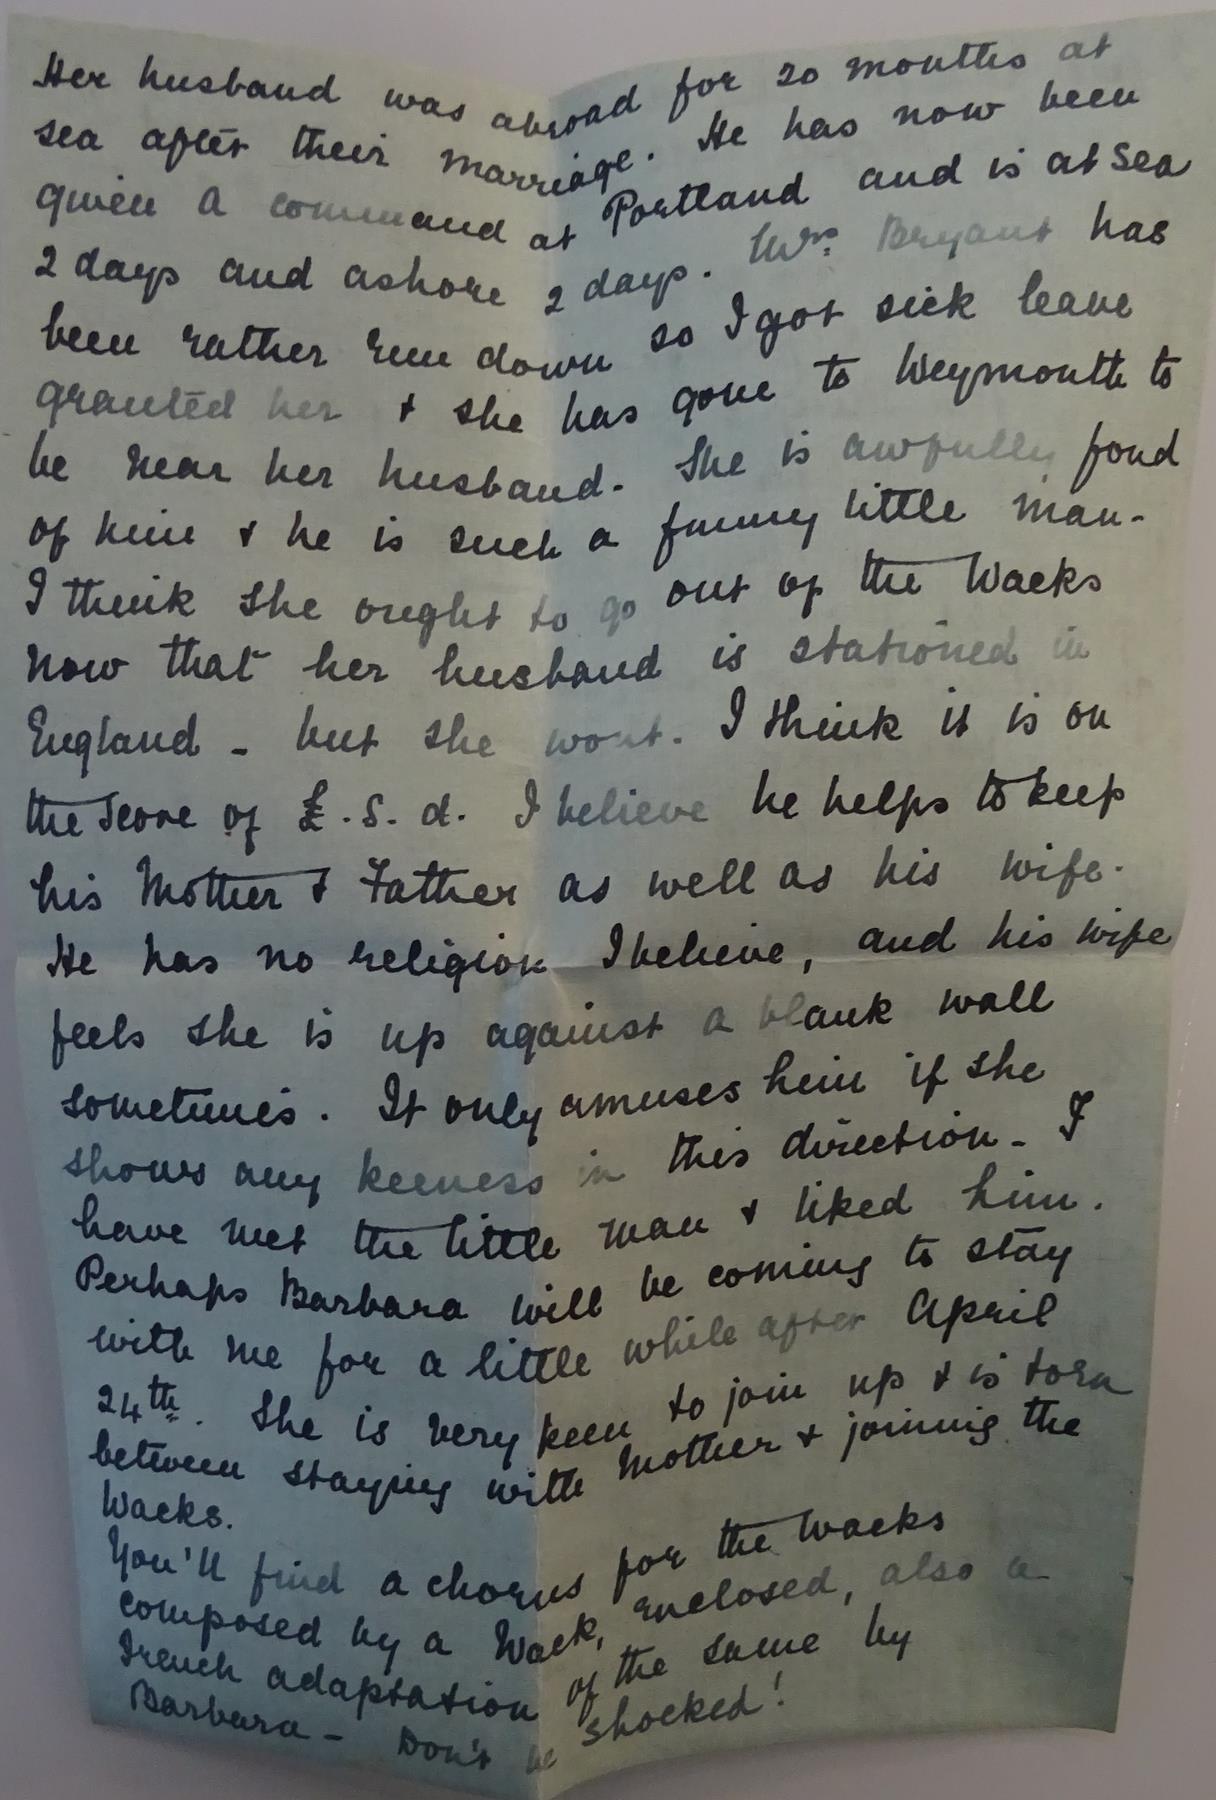 Her husband was abroad for 20 months at
sea after their marriage. He has now been
given a command at Portland and is at sea
2 days and ashore 2 days. Mrs. Bryant has
been rather run down so I got sick leave
granted her & she has gone to Weymouth to
be near her husband. She is awfully fond
of him & he is such a funny little man -
I think she ought to go out of the Wacks
now that her husband is stationed in
England - but she wont. I think it is on
the score of £. S. d. I believe he helps to keep
his Mother & Father as well as his wife.
He has no religion I believe, and his wife
feels she is up against a blank wall
sometimes. It only amuses him if she
shows any keeness in this direction - I
have met the little man & liked him.
Perhaps Barbara will be coming to stay
with me for a little while after April
24th. She is very keen to join up & is torn
between staying with Mother & joining the
Wacks.
You'll find a chorus for the Wacks
composed by a Wack, enclosed, also a
French adaptation of the same by
Barbara - Don't be shocked!